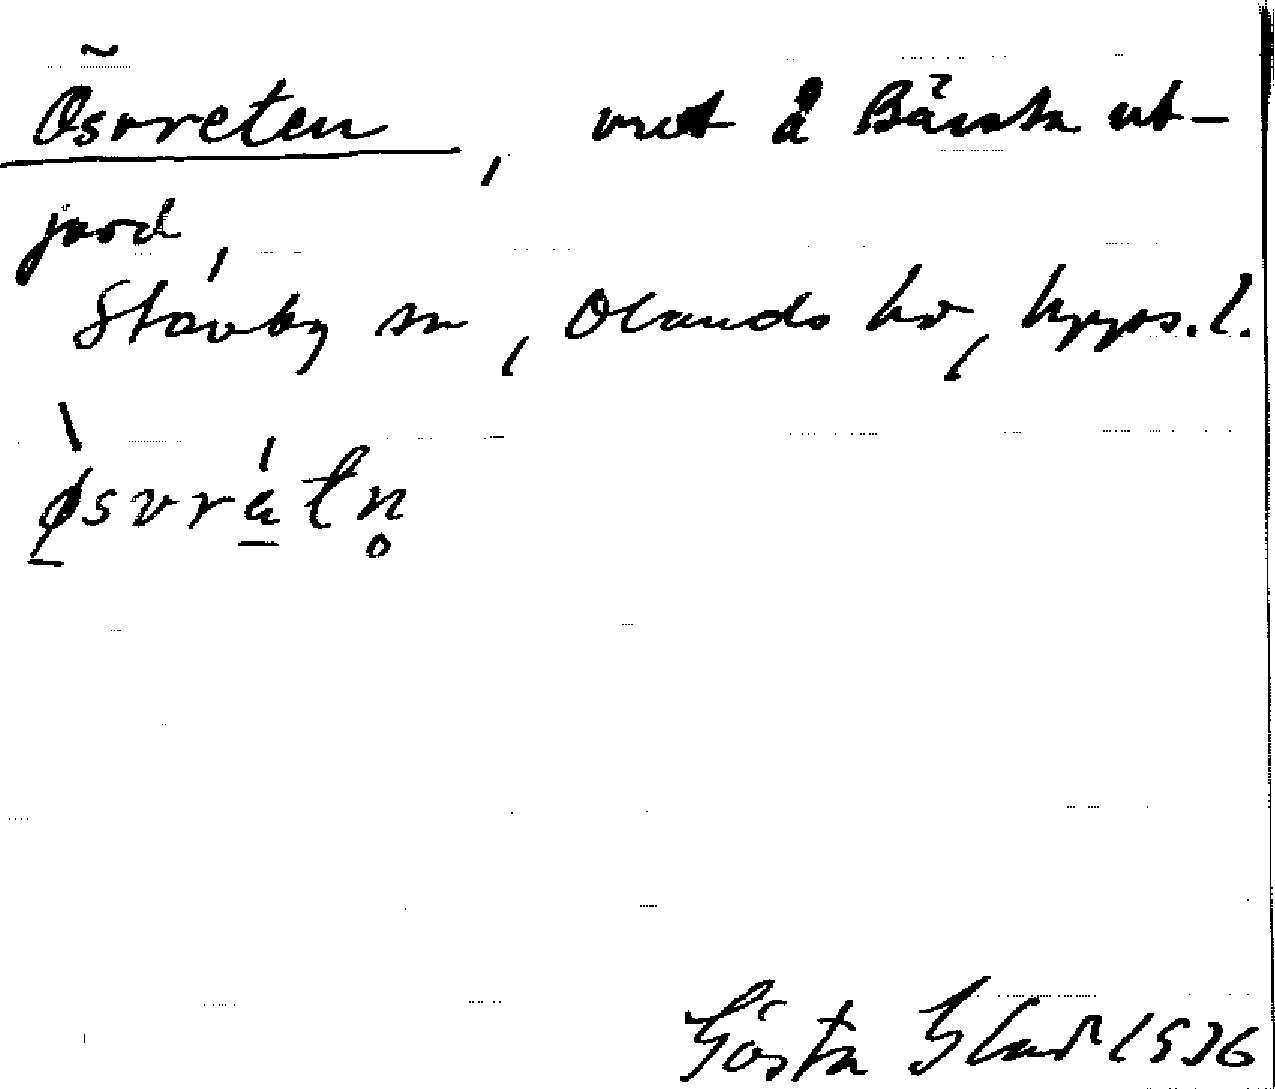 Ösvreten, vret å Bärsta ut-
jord,
Stavby sn, Olands hd, Upps. l.
ø̀svrátn̥
Gösta Blad 1936